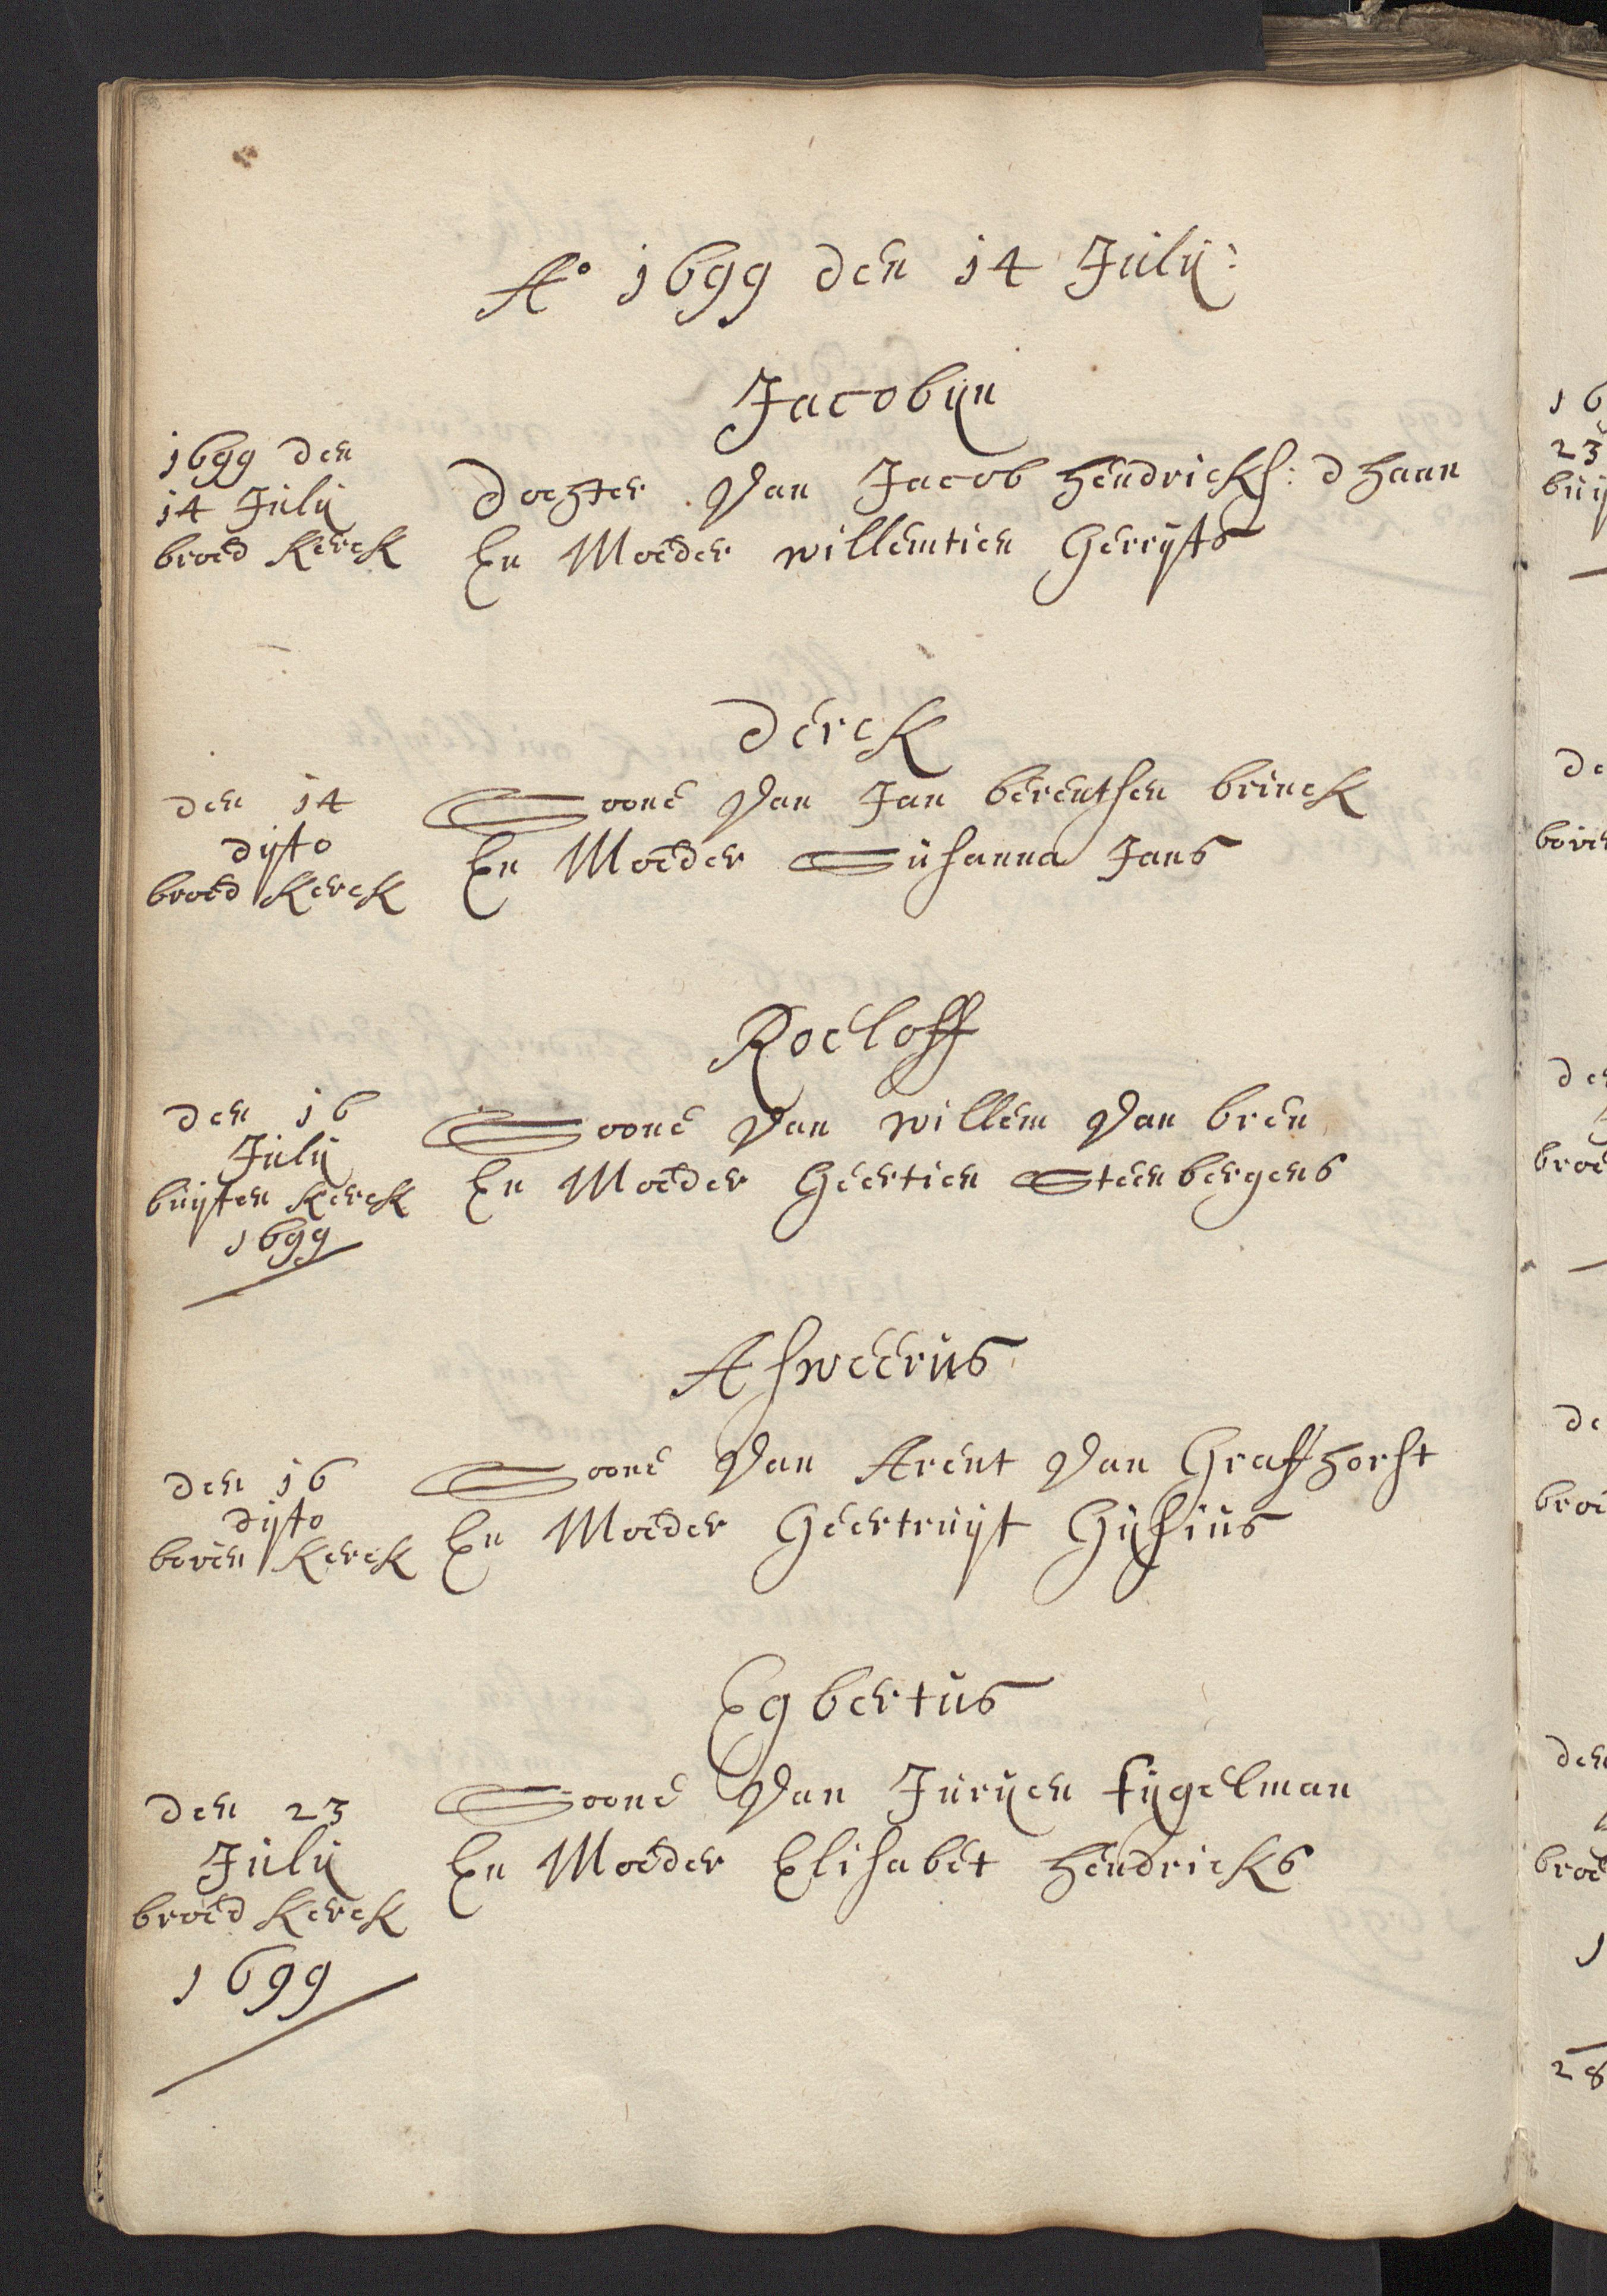 Ao 1699 den 14 Julij:
Jacobijn
1699 den
14 Julij
broed Kerck
Dochter Van Jacob Hendricks: d Haan
En Moeder willemtien Gerrijts
Derck
den 14
dijto
broed Kerck
Soone Van Jan berentsen brinck
En Moeder Susanna Jans
Roeloff
den 16
Julij
buijten Kerck
1699
Soone Van willem Van bren
En Moeder Geertien Steenbergens
Asweerus
den 16
dijto
boven Kerck
Soone Van Arent Van Graffhorst
En Moeder Geertruijt Gijsius
Egbertus
den 23
Julij
broed Kerck
1699
Soone Van Jurijen fijgelman
En Moeder Elisabet Hendricks
16
23
buij
de
boven
den
broe
de
broe
den
broe
1
28